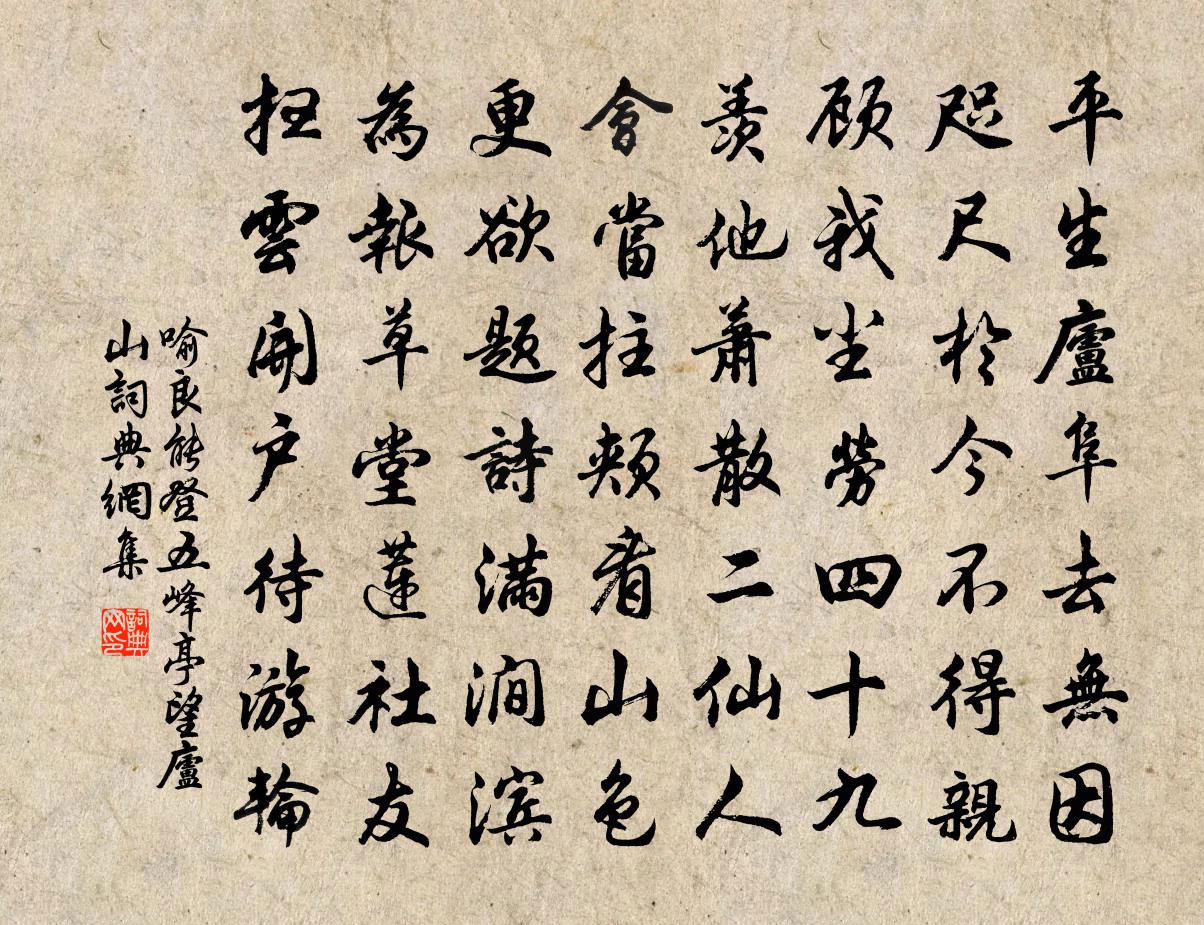 平生廬阜去無因
咫尺於今不得親
顧我坐勞四十九
羨他蕭散二仙人
會當拄頰看山色
更欲題詩滿澗滨
為報草堂蓮社友
扫雲開户待游輪
喻良能登五峰亭望廬
山詞典網集
詞典
网印